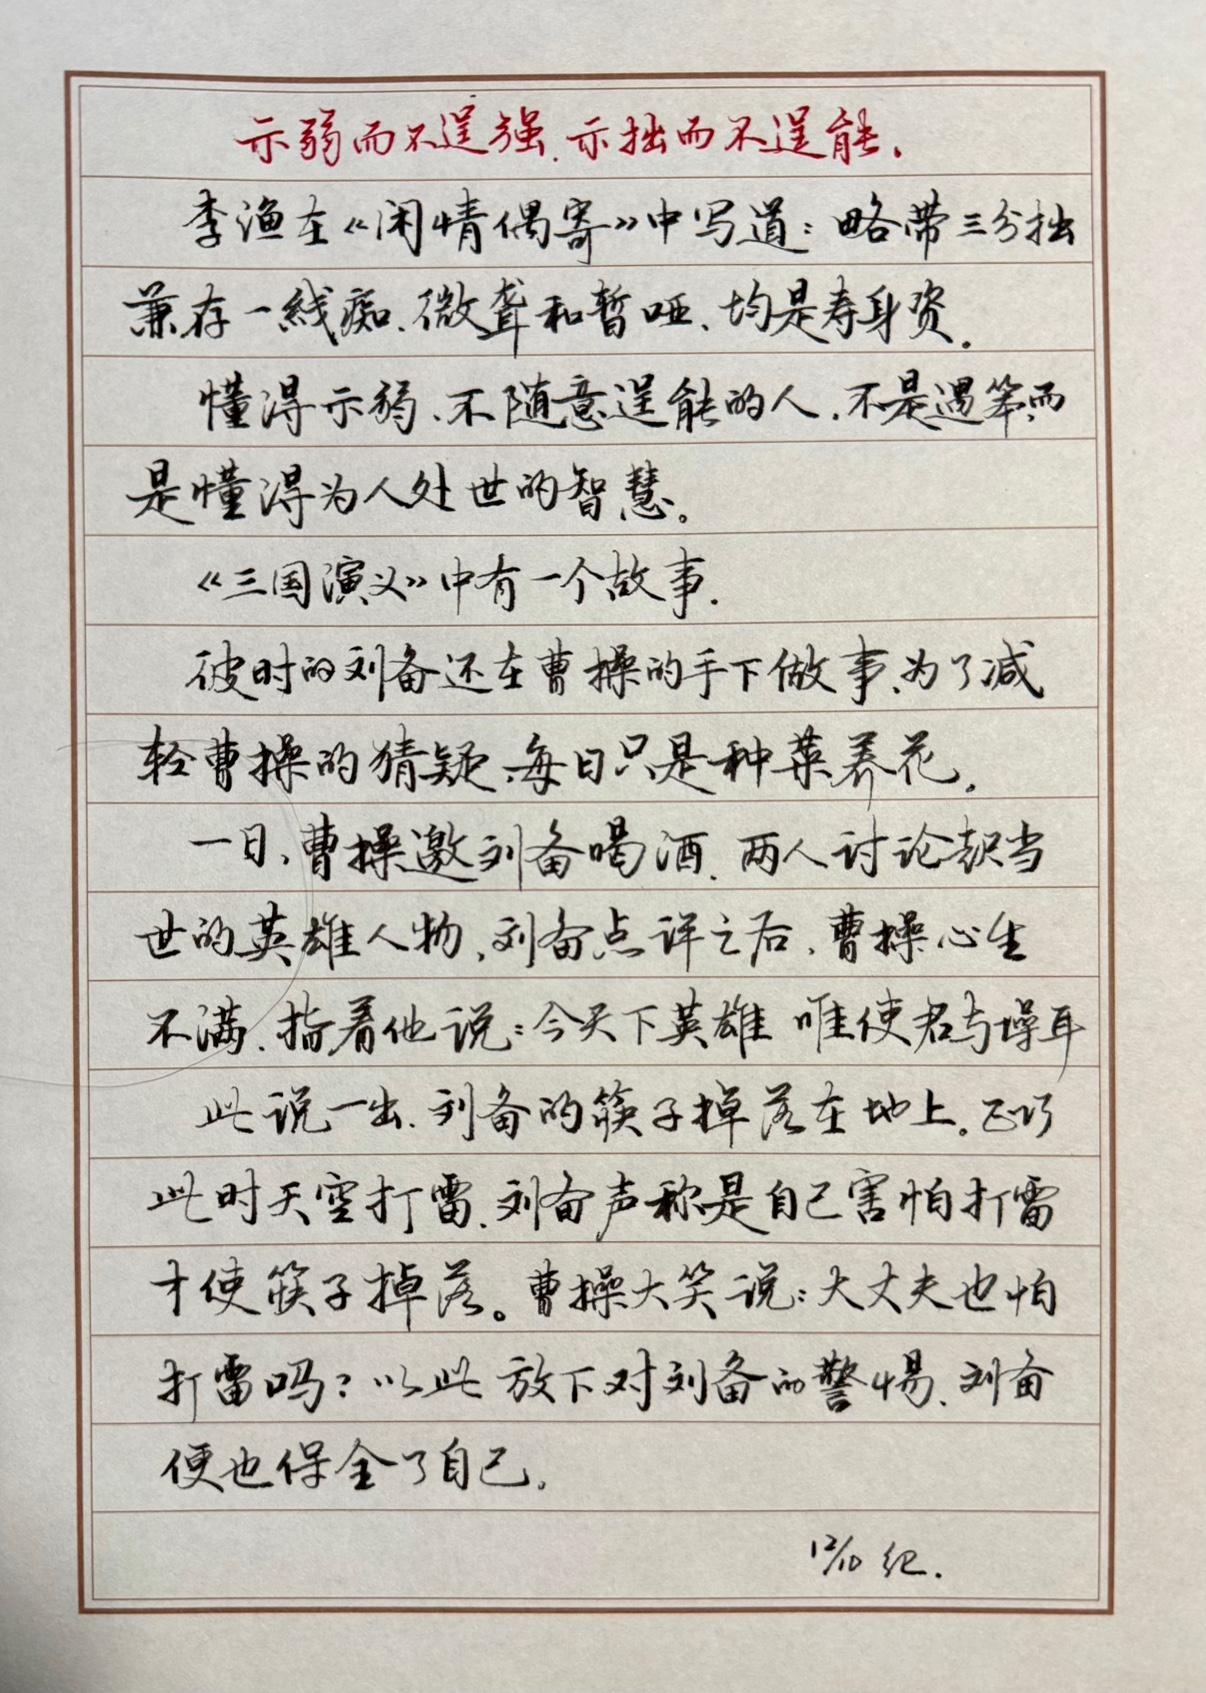 示弱而不逞强、示拙而不逞能.
李渔在《闲情偶寄》中写道：略带三分拙
兼存一线痴、微聋和暂哑、均是寿身资。
懂得示弱、不随意逞能的人、不是遇笨,而
是懂得为人处世的智慧。
《三国演义》中有一个故事.
彼时的刘备还在曹操的手下做事、为了减
轻曹操的猜疑、每日只是种菜养花.
一日、曹操邀刘备喝酒、两人讨论起当
世的英雄人物、刘备点评之后、曹操心生
不满、指着他说：今天下英雄 唯使君与操耳
此说一出、刘备的筷子掉落在地上。正巧
此时天空打雷、刘备声称是自己害怕打雷
才使筷子掉落。曹操大笑说：大丈夫也怕
打雷吗？以此放下对刘备的警惕、刘备
便也保全了自己.
12/10 纪.